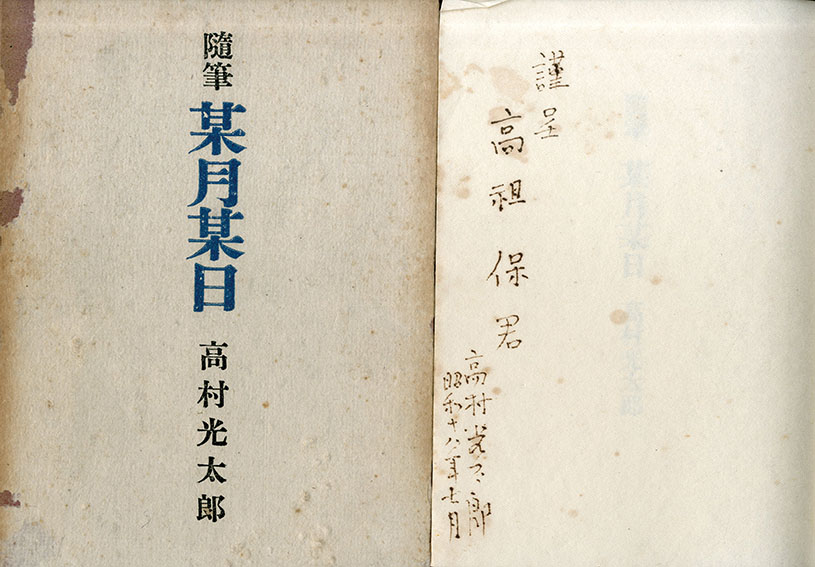 隨筆
某月某日
高村光太郎
謹呈
高祖保君
高村光太郎
昭和十八年七月